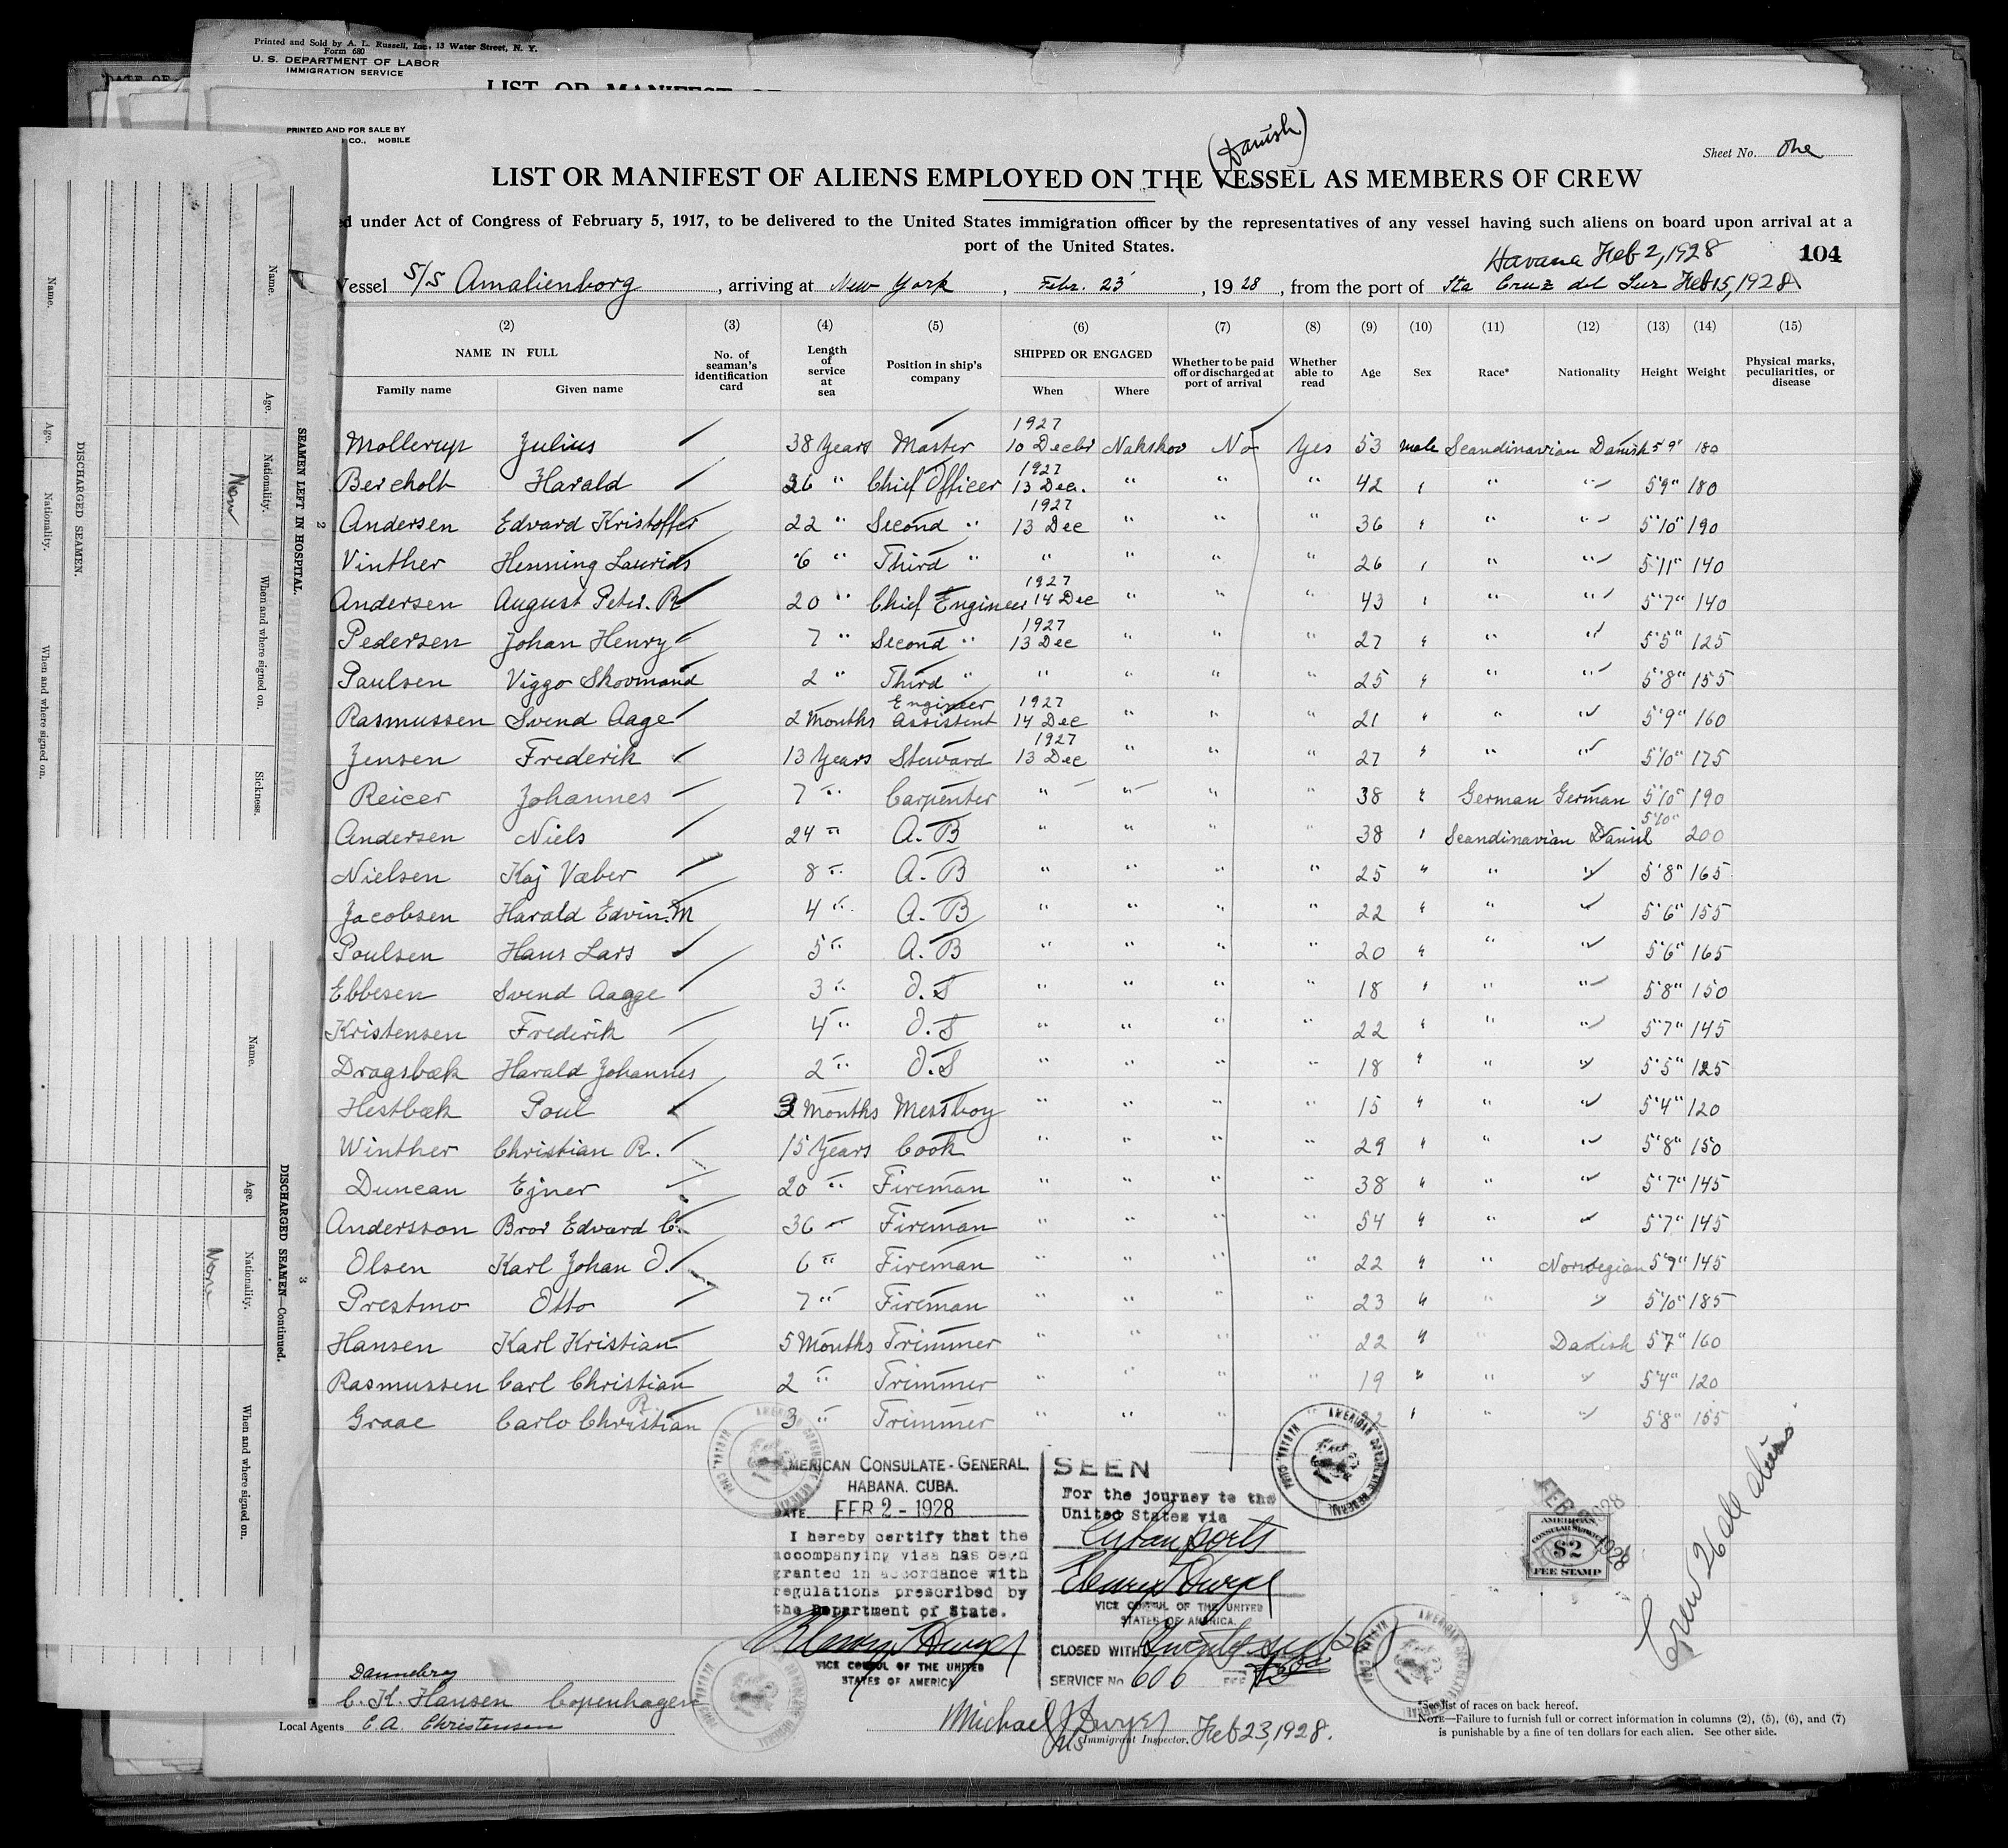 Printed and Sold by A. L. Russell, Inc., 13 Water Street, N. Y.
Form 680
U. S. DEPARTMENT OF LABOR
IMMIGRATION SERVICE
LIST OR MANIFEST OF
PRINTED AND FOR SALE BY
CO., MOBILE
Sheet No. One
(Danish)
LIST OR MANIFEST OF ALIENS EMPLOYED ON THE VESSEL AS MEMBERS OF CREW
ed under Act of Congress of February 5, 1917, to be delivered to the United States immigration officer by the representatives of any vessel having such aliens on board upon arrival at a
port of the United States.
Havana Feb 2, 1928
104
Vessel S/S Amalienborg, arriving at New York, Febr. 23, 1928, from the port of Sta Cruz del Sur Feb 15, 1928
(2) (3) (4) (5) (6) (7) (8) (9) (10) (11) (12) (13) (14) (15)
NAME IN FULL
Family name Given name
No. of seaman's identification card
Length of service at sea
Position in ship's company
SHIPPED OR ENGAGED
When Where
Whether to be paid off or discharged at port of arrival
Whether able to read
Age Sex Race* Nationality Height Weight
Physical marks, peculiarities, or disease
Mollerup Julius 38 Years Master 1927 10 Decbr Nakskov No Yes 53 male Scandinavian Danish 5'9" 180
Bercholt Harald 26 " Chief Officer 1927 13 Dec. " " " 42 " " " 5'9" 180
Andersen Edvard Kristoffer 22 " Second " 1927 13 Dec " " " 36 " " " 5'10" 190
Vinther Henning Laurids 6 " Third " " " " " 26 " " " 5'11" 140
Andersen August Peter. R 20 " Chief Engineer 1927 14 Dec " " " 43 " " " 5'7" 140
Pedersen Johan Henry 7 " Second " 1927 13 Dec " " " 27 " " " 5'5" 125
Paulsen Viggo Skovmand 2 " Third " " " " " 25 " " " 5'8" 155
Rasmussen Svend Aage 2 Months Engineer Assistent 1927 14 Dec " " " 21 " " " 5'9" 160
Jensen Frederik 13 Years Steward 1927 13 Dec " " " 27 " " " 5'10" 175
Reicer Johannes 7 " Carpenter " " " " 38 " German German 5'10" 190
Andersen Niels 24 " A. B " " " " 38 " Scandinavian Danish 5'10" 200
Nielsen Kaj Væber 8 " A. B " " " " 25 " " " 5'8" 165
Jacobsen Harald Edvin. M 4 " A. B " " " " 22 " " " 5'6" 155
Poulsen Hans Lars 5 " A. B " " " " 20 " " " 5'6" 165
Ebbesen Svend Aagge 3 " O. S " " " " 18 " " " 5'8" 150
Kristensen Frederik 4 " O. S " " " " 22 " " " 5'7" 145
Dragsbæk Harald Johannes 2 " O. S " " " " 18 " " " 5'5" 125
Hestbæk Poul 3 Months Messboy " " " " 15 " " " 5'4" 120
Winther Christian R. 15 Years Cook " " " " 29 " " " 5'8" 150
Duncan Ejner 20 " Fireman " " " " 38 " " " 5'7" 145
Andersson Bror Edvard C. 36 " Fireman " " " " 54 " " " 5'7" 145
Olsen Karl Johan O. 6 " Fireman " " " " 22 " " Norwegian 5'9" 145
Prestmo Otto 7 " Fireman " " " " 23 " " " 5'10" 185
Hansen Karl Kristian 5 Months Trimmer " " " " 22 " " Danish 5'7" 160
Rasmussen Carl Christian 2 " Trimmer " " " " 19 " " " 5'4" 120
Graae Carlo Christian R. 3 " Trimmer " " " " " " " 5'8" 155
AMERICAN CONSULATE-GENERAL,
HABANA, CUBA.
DATE FEB 2 - 1928
I hereby certify that the
accompanying visa has been
granted in accordance with
regulations prescribed by
the Department of State.
VICE CONSUL OF THE UNITED
STATES OF AMERICA
SEEN
For the journey to the
United States via
Cuban ports
VICE CONSUL OF THE UNITED
STATES OF AMERICA
CLOSED WITH Twenty six (26)
SERVICE No. 606 FEE
AMERICAN CONSULAR SERVICE
$2
FEE STAMP
FEB 2 1928
Crew 26 all aliens
Dannebrog
C. K. Hansen Copenhagen
Local Agents C. A. Christensen
Michael J Dwyer
Immigrant Inspector. Feb 23, 1928.
*See list of races on back hereof.
NOTE—Failure to furnish full or correct information in columns (2), (5), (6), and (7)
is punishable by a fine of ten dollars for each alien. See other side.
DISCHARGED SEAMEN.
Name. Age. Nationality. When and where signed on.
SEAMEN LEFT IN HOSPITAL.
Name. Age. Nationality. When and where signed on. Sickness.
None
2
DISCHARGED SEAMEN—Continued.
Name. Age. Nationality. When and where signed on.
None
3